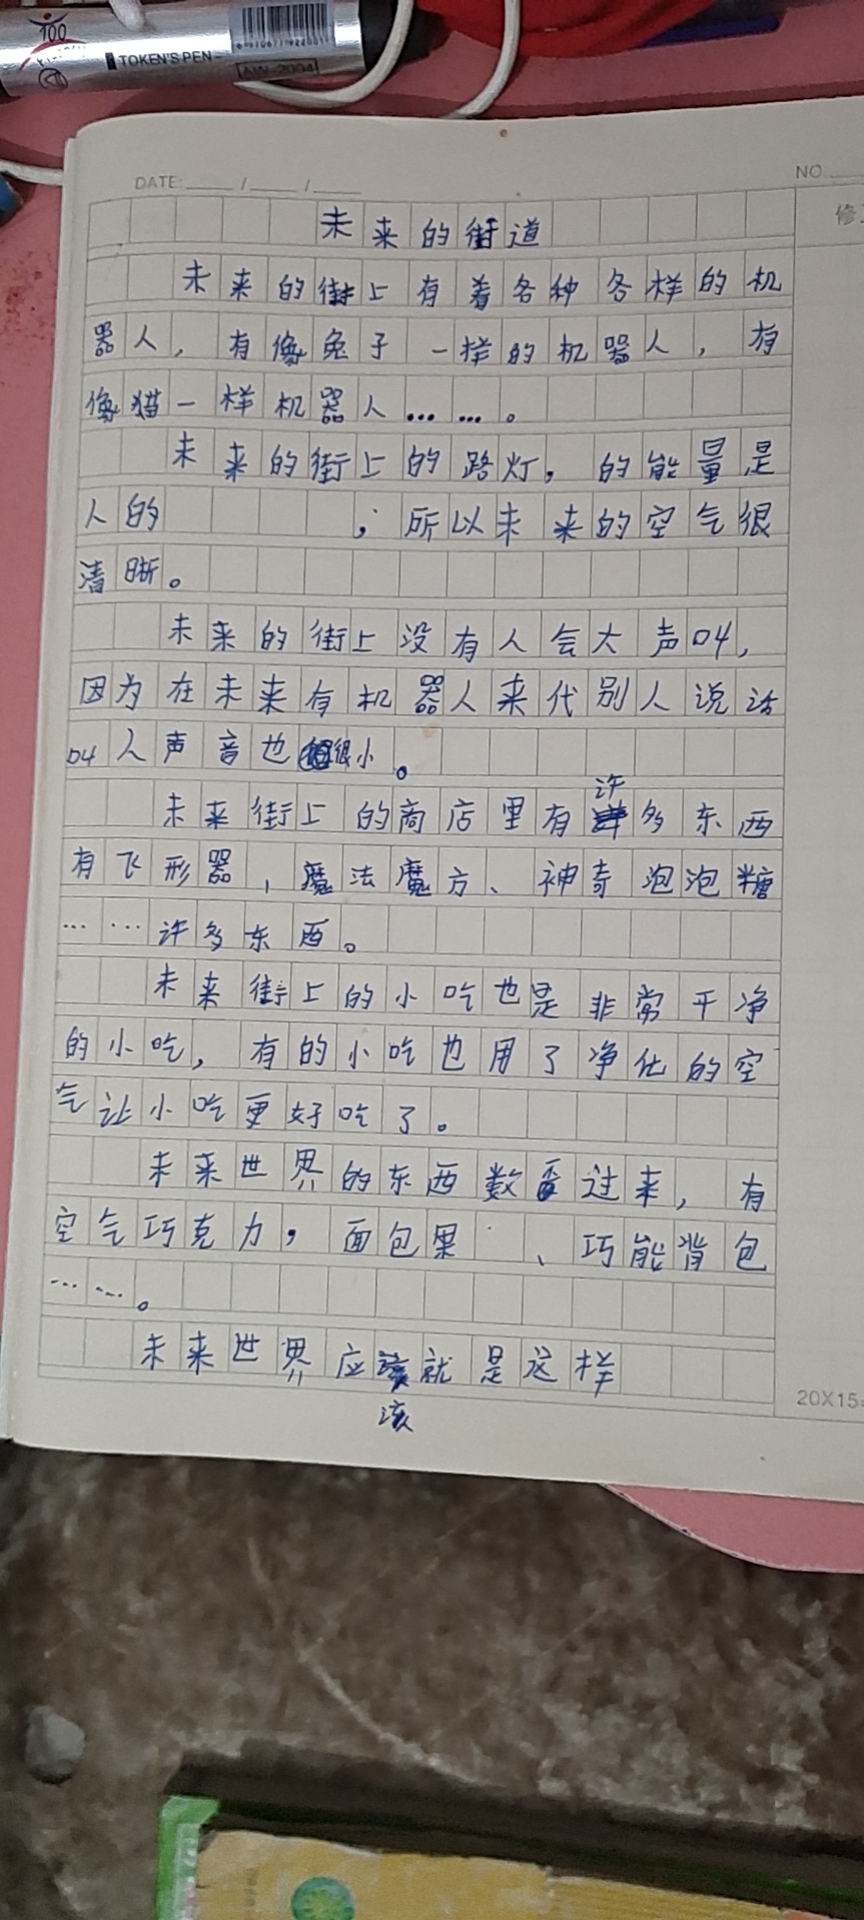 100
TOKEN'S PEN
AW-2004
DATE: / /
NO
修
未来的街道
未来的街上有着各种各样的机
器人，有像兔子一样的机器人，有
像猫一样机器人……。
未来的街上的路灯，的能量是
人的，所以未来的空气很
清晰。
未来的街上没有人会大声叫，
因为在未来有机器人来代别人说话
叫人声音也很小。
未来街上的商店里有许多东西
有飞形器，魔法魔方、神奇泡泡糖
……许多东西。
未来街上的小吃也是非常干净
的小吃，有的小吃也用了净化的空
气让小吃更好吃了。
未来世界的东西数过来，有
空气巧克力，面包果、巧能背包
……。
未来世界应该就是这样
20X15